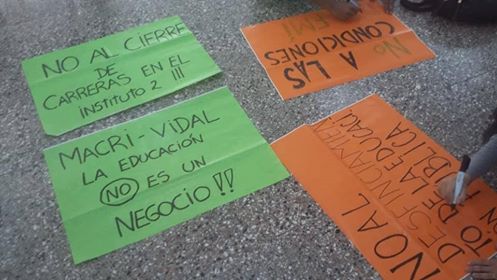 NO AL CIERRE
DE
CARRERAS EN EL
INSTITUTO 2 !!!
MACRI - VIDAL
LA EDUCACIÓN
NO ES UN
NEGOCIO!!
NO A LAS
CONDICIONES
FMI
NO AL
DESFINANCIAMIEN
TO DE LA EDUCACI
ÓN PÚBLICA